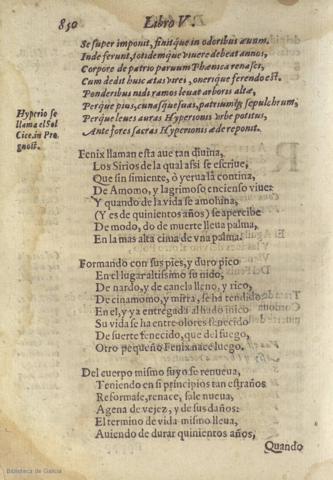 850 Libro V.
Se super imponit, finitque in odoribus æuum.
Inde ferunt, totidem qui viuere debeat annos,
Corpore de patrio paruum Phænica renasci,
Cum dedit huic ætas vires, onerique ferendo est.
Ponderibus nidi ramos leuat arboris altæ,
Perque pius, cunasque suas, patriumque sepulchrum,
Perque leues auras Hypersonis vrbe potitus,
Ante fores sacras Hypersonis æde reponit.
Hyperio se
llama el Sol
Cice. in Pro
gnost.
Fenix llaman esta aue tan diuina,
Los Sirios de la qual assi se escriue,
Que sin simiente, ò yerua la contina,
De Amomo, y lagrimoso encienso viue:
Y quando de la vida se amohina,
(Y es de quinientos años) se apercibe
De modo, do de muerte lleua palma,
En la mas alta cima de vna palma.
Formando con sus pies, y duro pico
En el lugar altissimo su nido,
De nardo, y de canela lleno, y rico,
De cinamomo, y mirra, se ha tendido
En el, y ya entregada al hado inico
Su vida se ha entre olores fenecido
De suerte fenecido, que del fuego,
Otro pequeño Fenix nace luego,
Del cuerpo mismo suyo se renueua,
Teniendo en si principios tan estraños
Reformase, renace, sale nueua,
Agena de vejez, y de sus daños:
El termino de vida mismo lleua,
Auiendo de durar quinientos años,
Quando
Biblioteca de Galicia